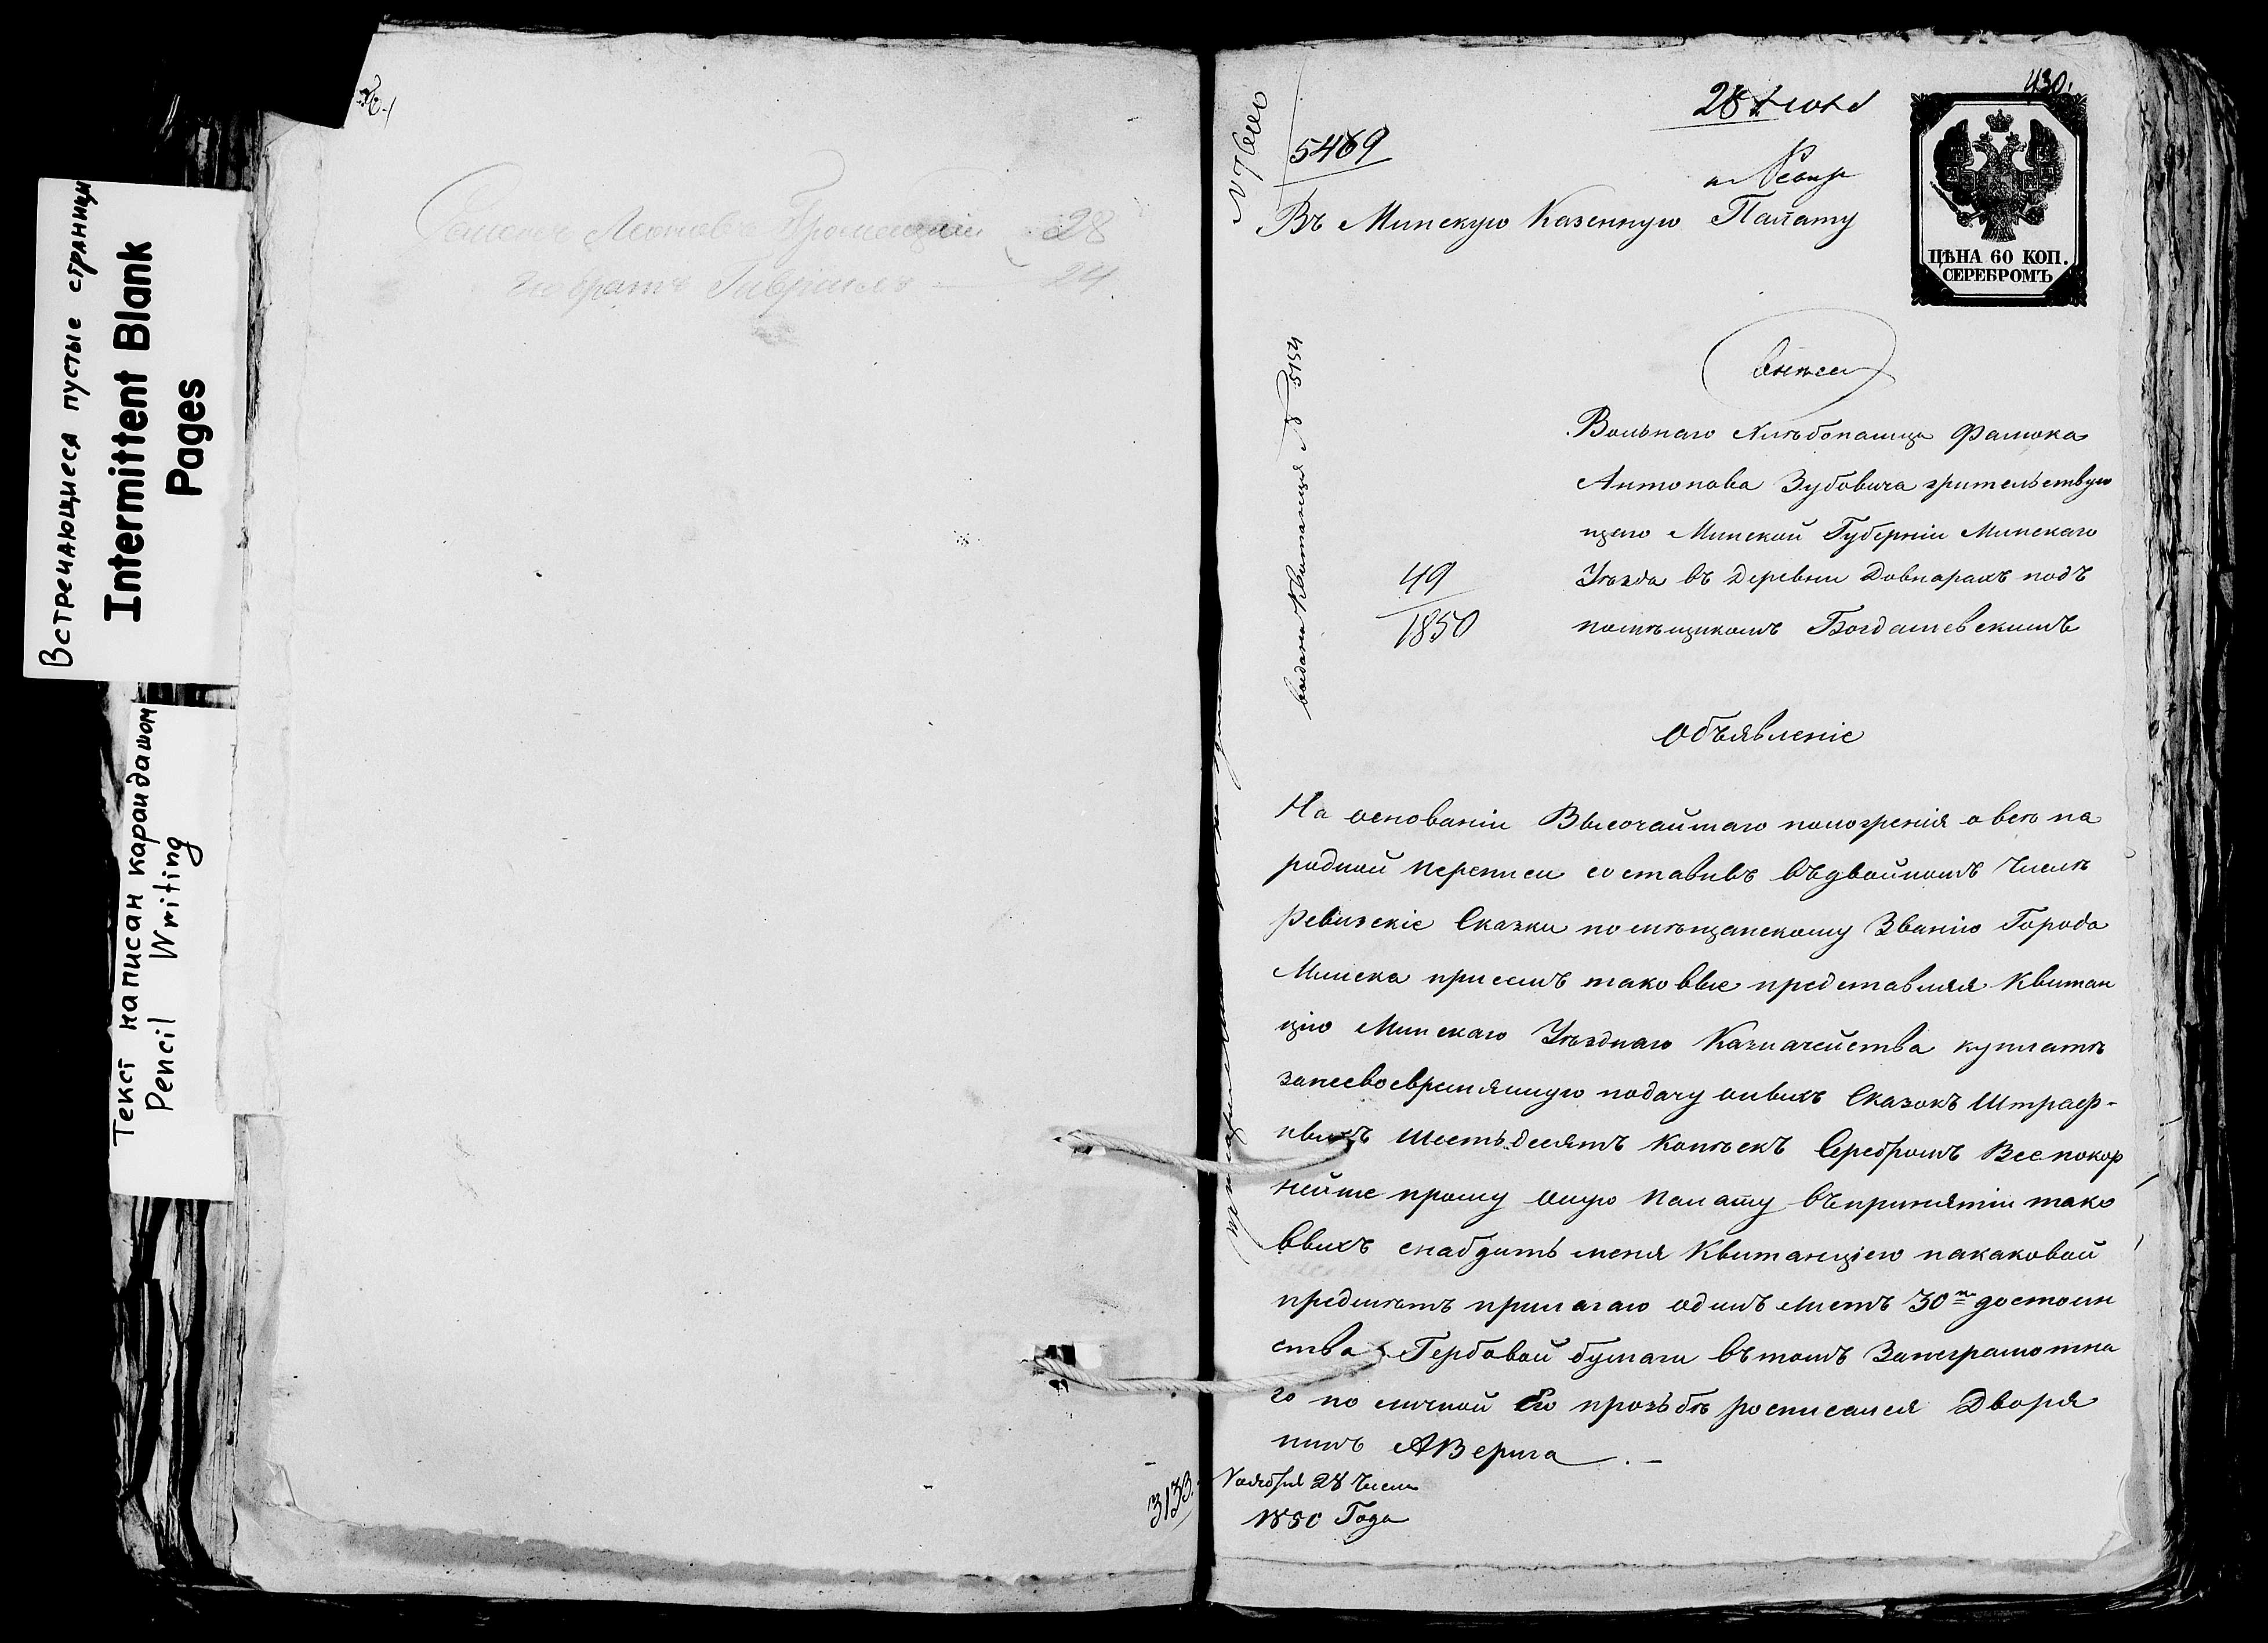 Встречающиеся пустые страницы
Intermittent Blank
Pages
Текст написан карандашом
Pencil Writing
28
брать Гаврило 24
3133.
430.
5469
Въ Минскую Казенную Палату
ЦѢНА 60 КОП.
СЕРЕБРОМЪ
выдана Квитанція № 5154
49
1850
Вольнаго Хлѣбопашца
Антонова Зубовича жительствую
щаго Минской Губерніи Минскаго
Уѣзда въ Деревни Довнарахъ подъ
помѣщикомъ Богдашевскимъ
Объявленіе
На основаніи Высочайшаго положенія о все на
родной переписи составивъ въдвойномъ Числѣ
Ревизскіе Сказки по мѣщанскому Званію Города
Минска присемъ таковые представляя Квитан
цію Минскаго Уѣзднаго Казначейства куплатѣ
занесвоевремянную подачу оныхъ Сказокъ Штраф-
ныхъ Шестьдесятъ Копѣекъ Серебромъ Все покор
нейше прошу оную Палату въпринятіи тако
выхъ снабдить меня Квитанціею накаковой
предмѣтъ прилагаю одинъ листъ 30 достоин
ства Гербовой бумаги вътомъ Занеграмотна
го по личной Его прозьбѣ росписался Дворя
нинъ АВерига
Ноября 28 Числа
1850 Года